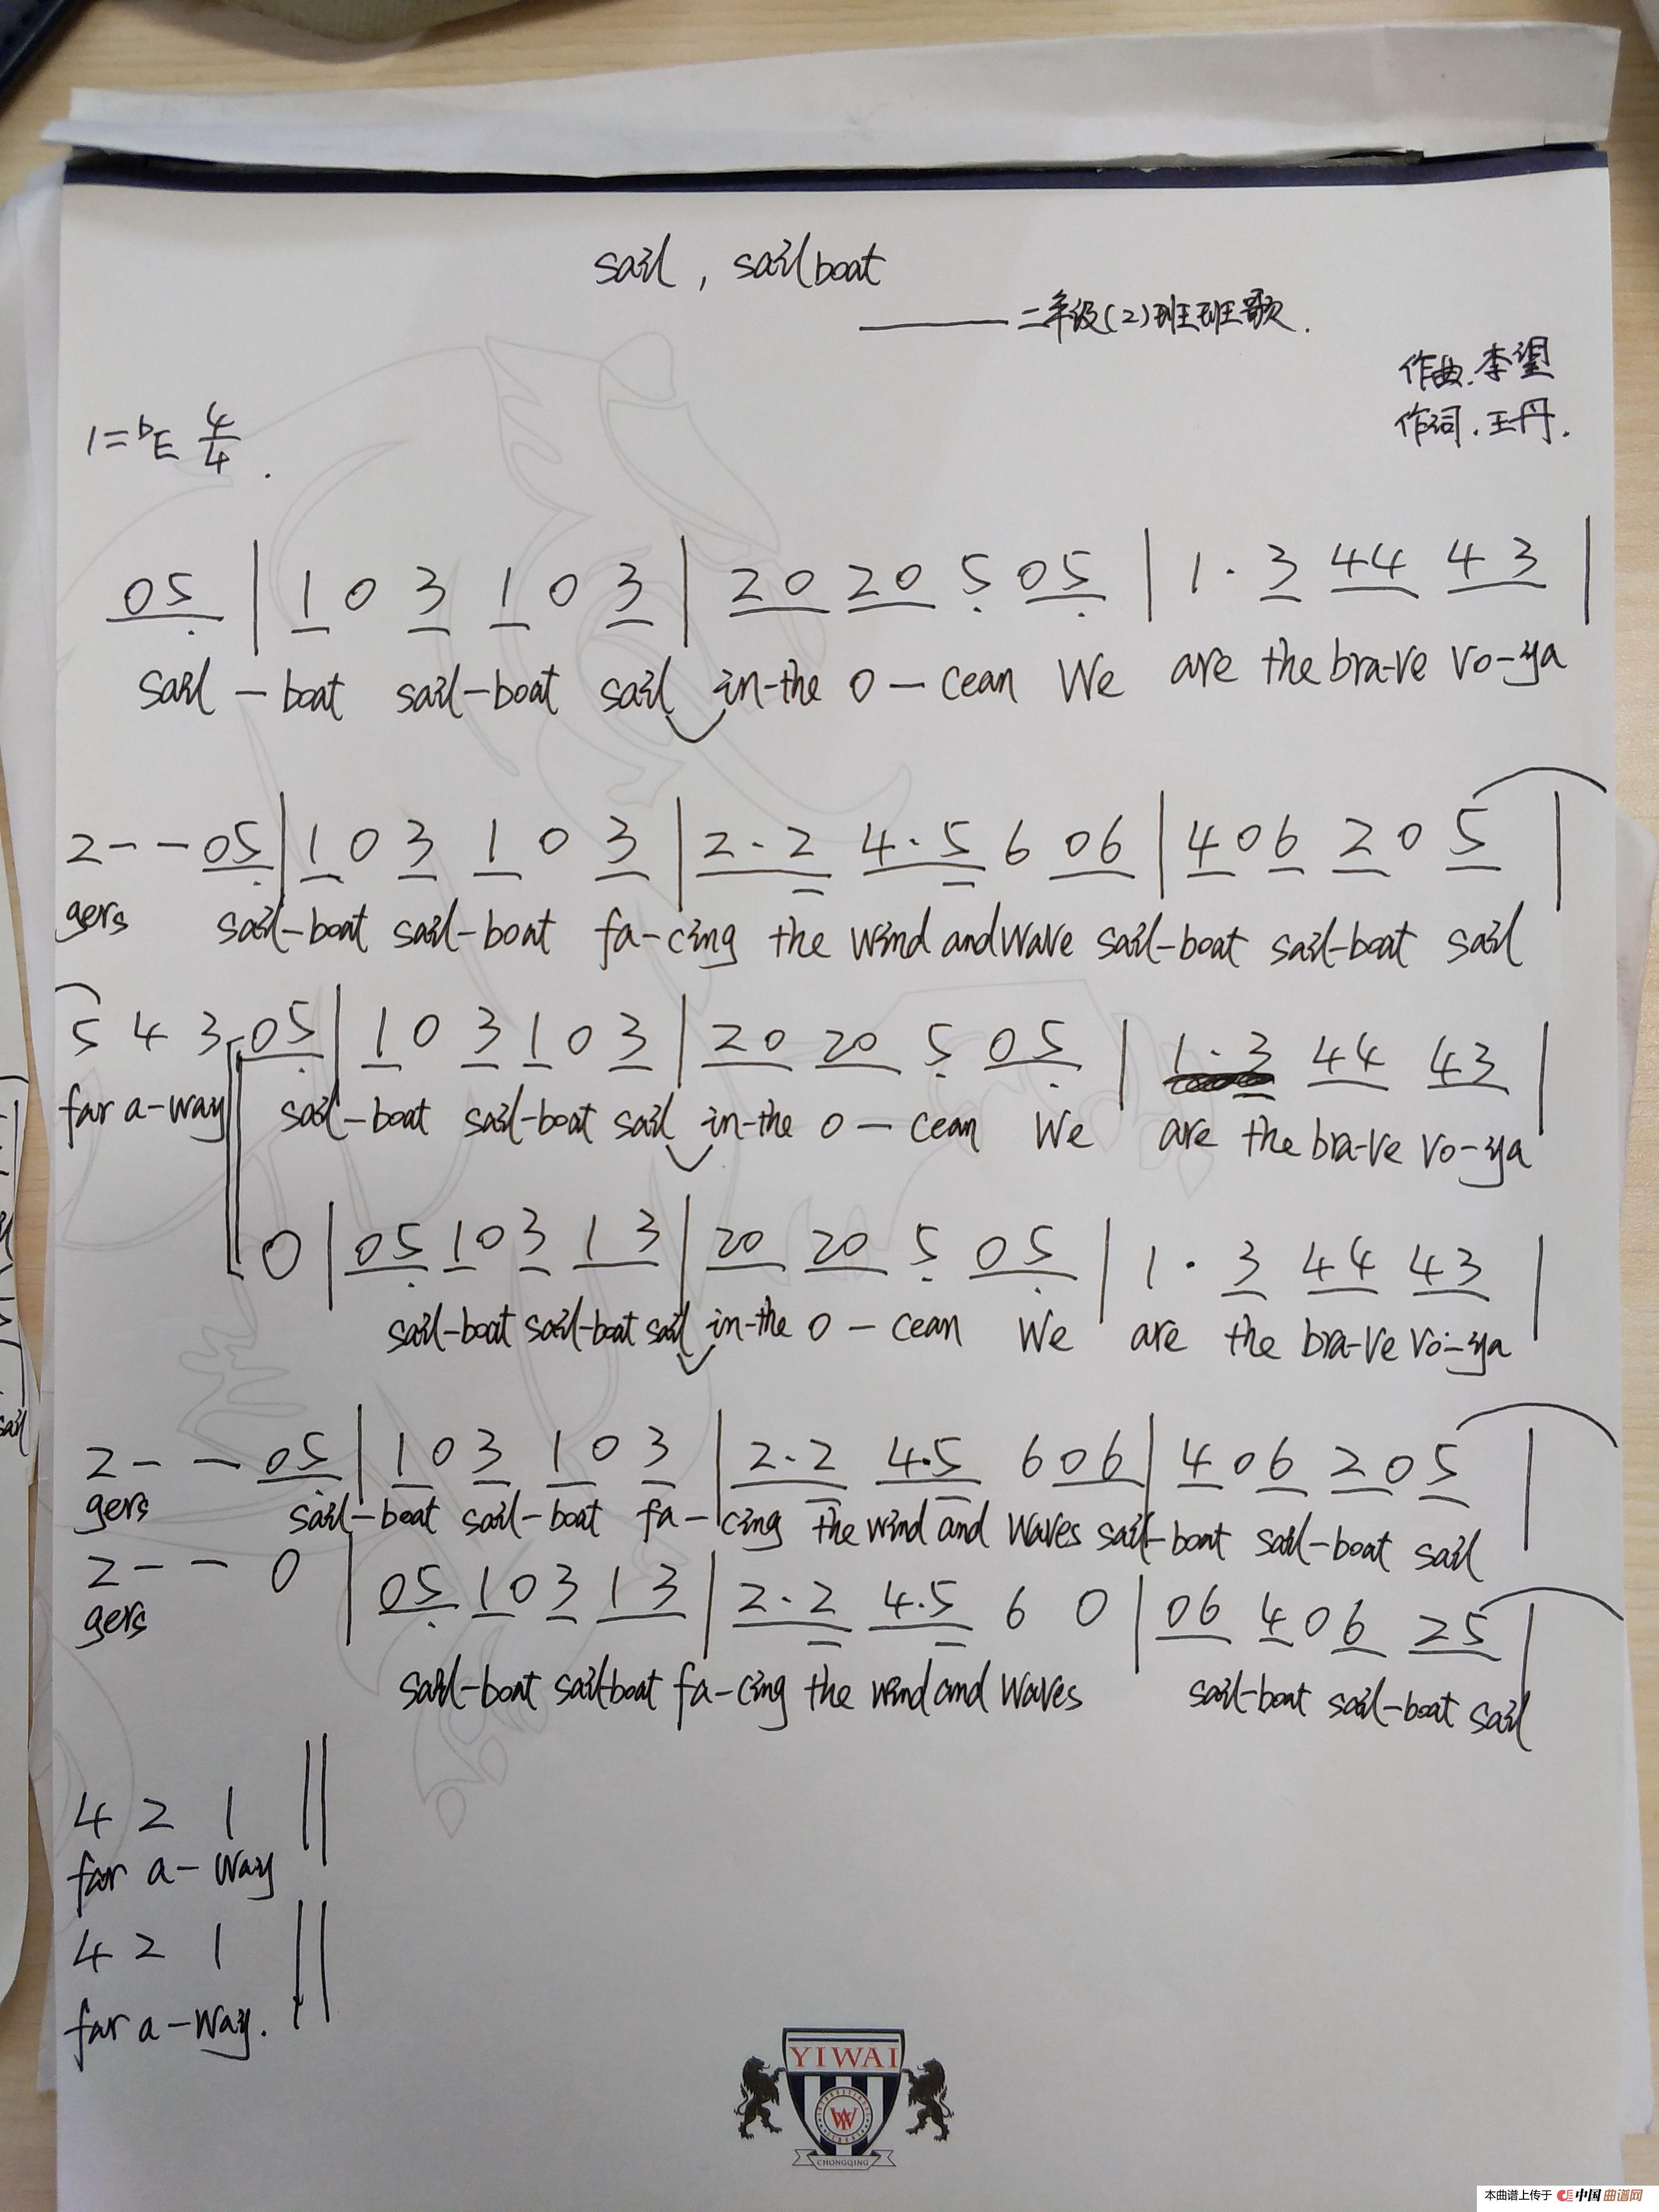 sail, sailboat
——二年级(2)班班歌.
作曲.李望
作词.王丹.
1=bE 4/4.
05 | 1 0 3 1 0 3 | 20 20 5 05 | 1 · 3 44 43 |
sail - boat sail-boat sail in-the o - cean We are the bra-ve vo-ya
2 - - 05 | 1 0 3 1 0 3 | 2·2 4·5 6 06 | 4 0 6 2 0 5 |
gers sail-boat sail-boat fa-cing the wind and wave sail-boat sail-boat sail
5 4 3 05 | 1 0 3 1 0 3 | 20 20 5 05 | 1·3 44 43 |
far a-way sail-boat sail-boat sail in-the o - cean We are the bra-ve vo-ya
0 | 05 1 0 3 1 3 | 20 20 5 05 | 1 · 3 44 43 |
sail-boat sail-boat sail in-the o - cean We are the bra-ve vo-ya
2 - - 05 | 1 0 3 1 0 3 | 2·2 4·5 6 06 | 4 0 6 2 0 5 |
gers sail-boat sail-boat fa-cing the wind and waves sail-boat sail-boat sail
2 - - 0 | 05 1 0 3 1 3 | 2·2 4·5 6 0 | 06 4 0 6 25 |
gers sail-boat sailboat fa-cing the wind and waves sail-boat sail-boat sail
4 2 1 ||
far a-way
4 2 1 ||
far a-way.
YIWAI
CHONGQING
本曲谱上传于 中国曲谱网